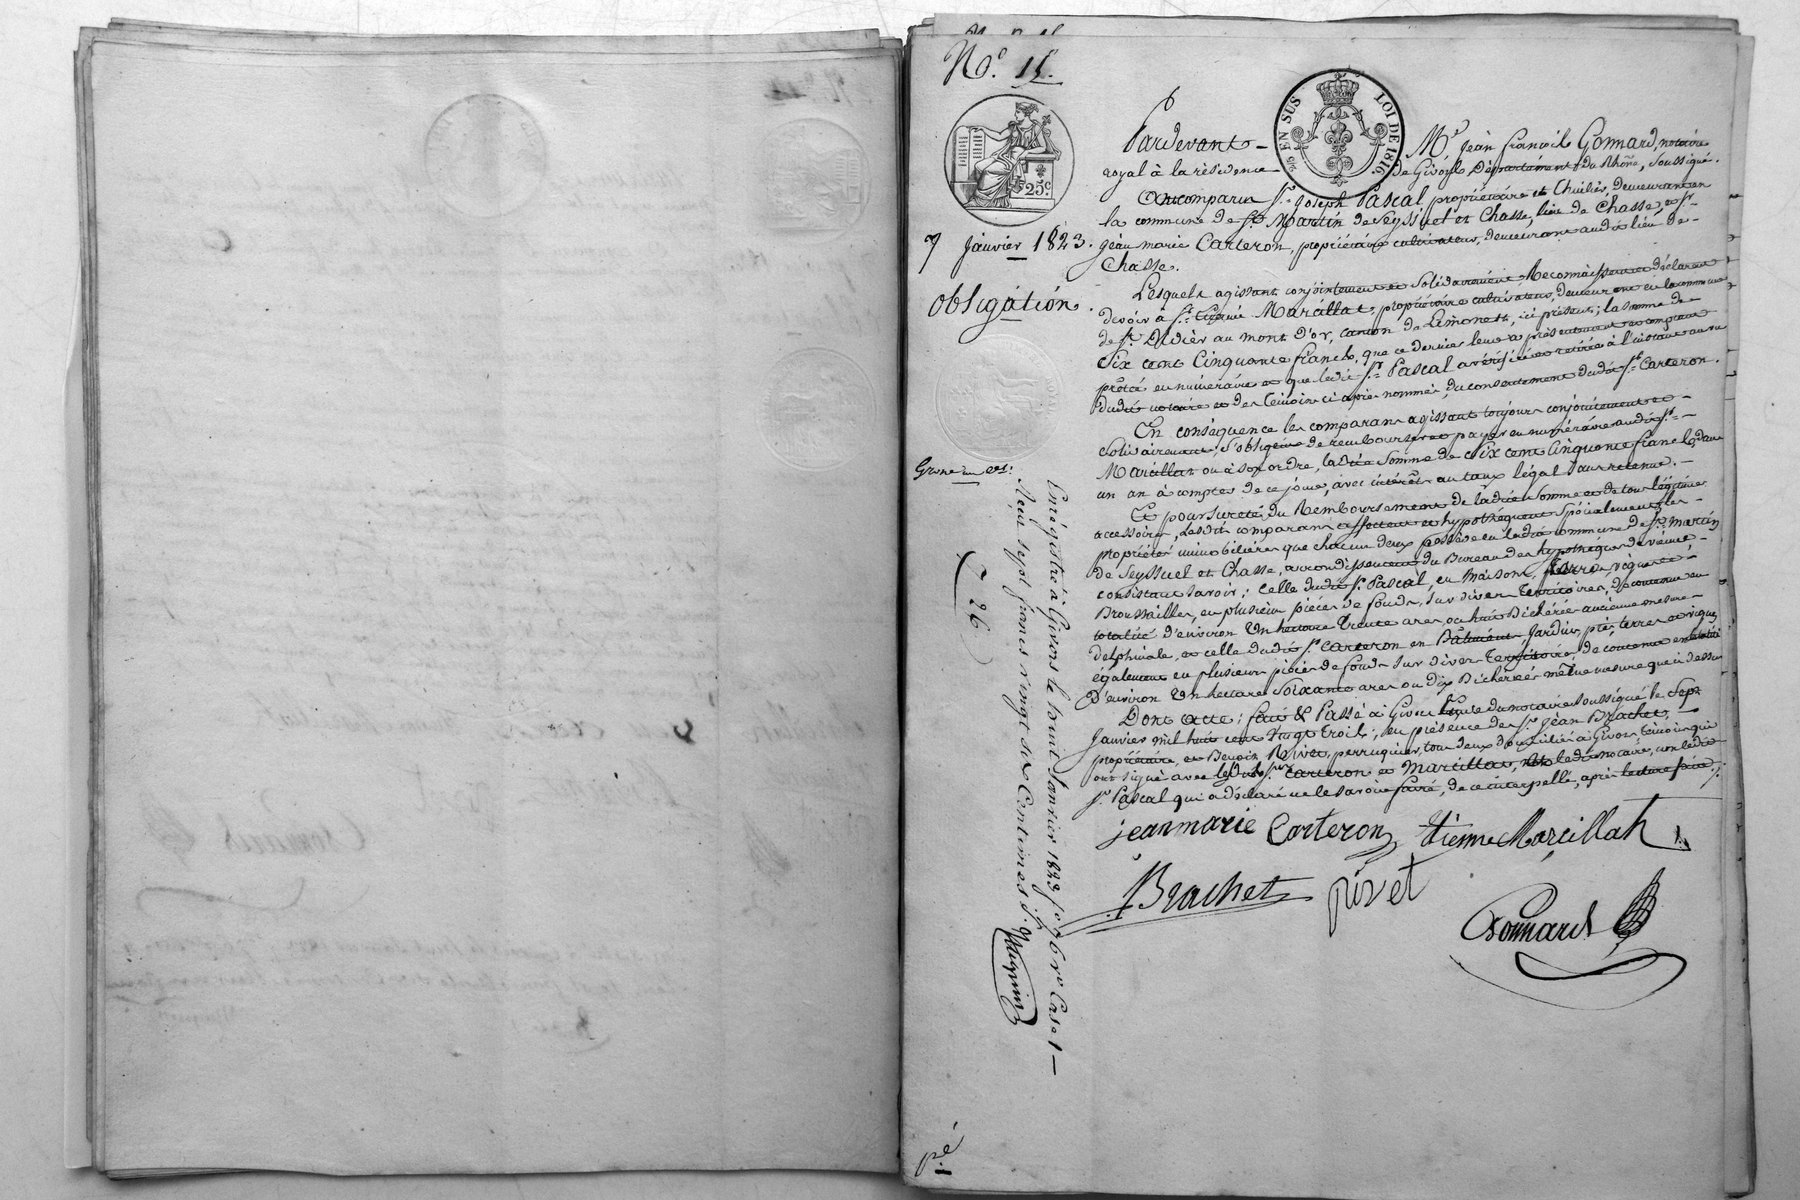 No. 15.
EN SUS
LOI DE 1816
25c
7 Janvier 1823.
Obligation.
Pardevant Me. Jean François Gonnard, notaire
royal à la résidence de Givors Département du Rhône, soussigné.
Ont comparu Sr. Joseph Pascal propriétaire et demeurant en
la commune de St. Martin de Seyssuel et Chasse, lieu de Chasse, et Sr.
Jean marie Carteron, propriétaire cultivateur, demeurant audit lieu de
Chasse.
Lesquels agissant conjointement et Solidairement, Reconnaissent et déclarent
devoir à Sr. Etienne Marcillat, propriétaire cultivateur, demeurant en la commune
de St. Didier au mont d'or, canton de Limonest, ici présent; la somme de
Six cent Cinquante francs, que ce dernier leur a présentement et comptant
prêté en numéraire et que ledit Sr. Pascal a vérifiée et retirée à l'instant au vu
dudit notaire et des témoins ci après nommés, du consentement dudit Sr. Carteron.
En conséquence les comparans agissant toujours conjointement et
Solidairement, s'obligent de rembourser et payer en numéraire audit Sr.
Marcillat ou à son ordre, ladite Somme de Six cent Cinquante francs, dans
un an à compter de ce jour, avec intérêts au taux légal sans retenue.
Et pour sureté du Remboursement de ladite Somme et de tous légitimes
accessoires, Lesdits comparans affectent et hypothèquent Spécialement, les
propriétés immobilières que chacun deux possède en ladite commune de St. Martin
de Seyssuel et Chasse, arrondissement du Bureau des hypothèques de vienne
consistant savoir; Celle dudit Sr. Pascal, en Maison, terres, vignes et
Broussailles, en plusieurs pièces de fonds, sur divers Territoires, de contenue en
totalité d'environ Un hectare Trente ares, ou huit Bicherées ancienne mesure
delphinale, et celle dudit Sr. Carteron en Bâtiment, Jardin, prés, terres et vignes
egalement en plusieurs pièces de fonds sur divers Territoires, de contenue en totalité
d'environ Un hectare Soixante ares ou dix Bicherées même mesure que ci dessus
Dont acte; fait & Passé à Givors Etude du notaire soussigné le Sept
Janvier mil huit cent vingt trois; en présence de Sr. Jean Brachet,
propriétaire, et Benoit Rivet, perruquier, tous deux domiciliés à Givors témoins qui
ont signé avec lesdits Srs. Carteron et Marcillat, et ledit notaire, non ledit
Sr. Pascal qui a déclaré ne le savoir faire, de ce interpellé, après lecture faite.
jean marie Carteron Etienne Marcillat
Brachet rivet
Gonnard
Enrégistré à Givors le huit Janvier 1823 fo. 96 ro Case 1
Reçu sept francs vingt six Centimes
7 26